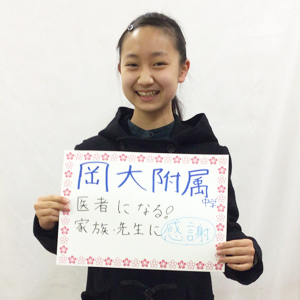 岡大附属中学
医者になる!
家族・先生に感謝